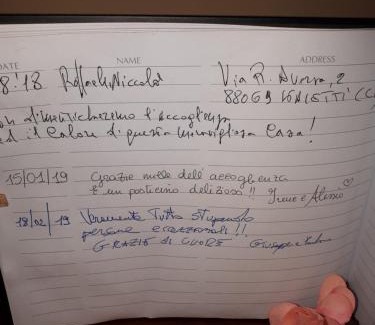 DATE NAME ADDRESS
8'18 Raffaele, Niccolò Via R. 2
88069
dimenticheremo l'accoglienza
ed il calore di questa meravigliosa casa!
15/01/19 Grazie mille dell'accoglienza
È un posticino delizioso!! Irene e Alessio
18/02/19 Veramente tutto stupendo
persone eccezionali!!
GRAZIE di CUORE Giuseppe e